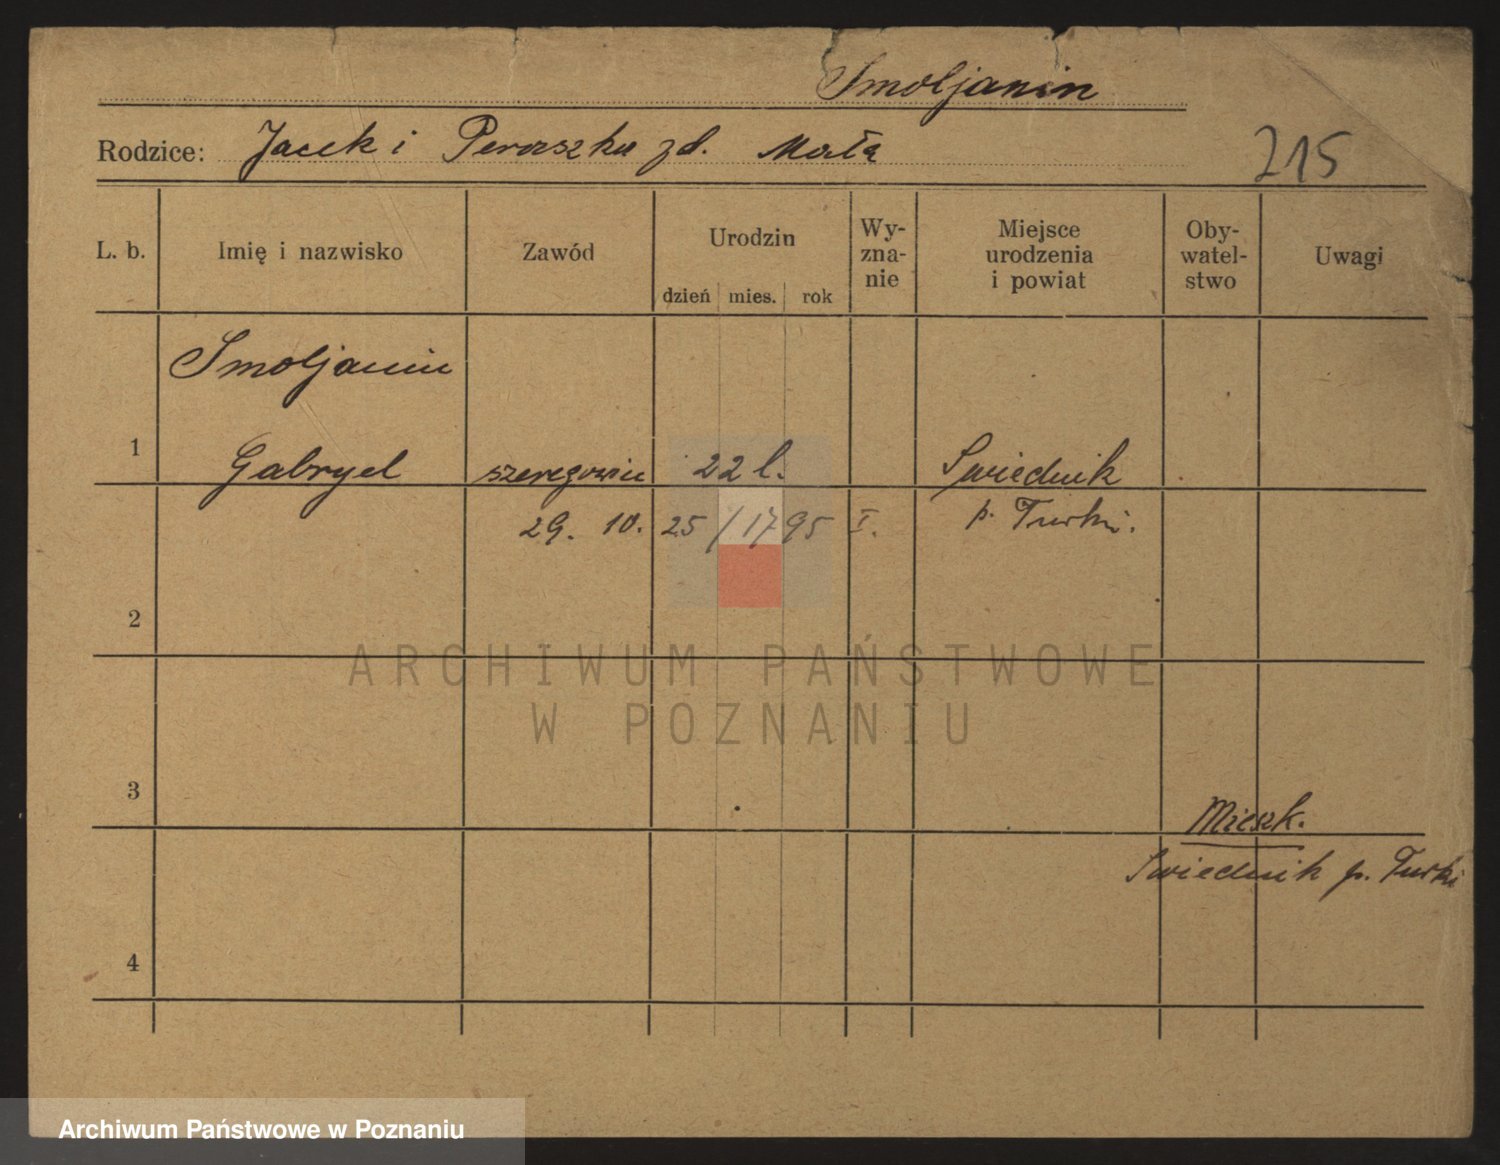 Smoljanin
Rodzice: Jacek i Peraszka zd. Mała
215
L. b. Imię i nazwisko Zawód Urodzin dzień mies. rok Wy-zna-nie Miejsce urodzenia i powiat Oby-watel-stwo Uwagi
Smoljanin
1 Gabryel szeregowiec 22 l. Swiednik
29. 10. 25 / 1795 I. p. Turki.
2
ARCHIWUM PAŃSTWOWE
W POZNANIU
3
Mieszk.
Swiednik p. Turki
4
Archiwum Państwowe w Poznaniu